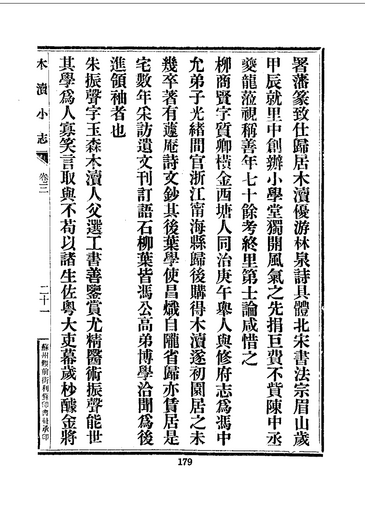 署藩篆致仕歸居木瀆優游林泉詩具體北宋書法宗眉山歲
甲辰就里中創辦小學堂獨開風氣之先捐巨費不貲陳中丞
夔龍蒞視稱善年七十餘考終里第士論咸惜之
柳商賢字質卿橫金西塘人同治庚午舉人與修府志爲馮中
允弟子光緒間官浙江甯海縣歸後購得木瀆遂初園居之未
幾卒著有蘧庵詩文鈔其後葉學使昌熾自隴省歸亦賃居是
宅數年采訪遺文刊訂語石柳葉皆馮公高弟博學洽聞爲後
進領袖者也
朱振聲字玉森木瀆人父選工書善鑒賞尤精醫術振聲能世
其學爲人寡笑言取與不苟以諸生佐粵大吏幕歲杪醵金將
木瀆小志
卷三
二十一
蘇州
利蘇印書社承印
179